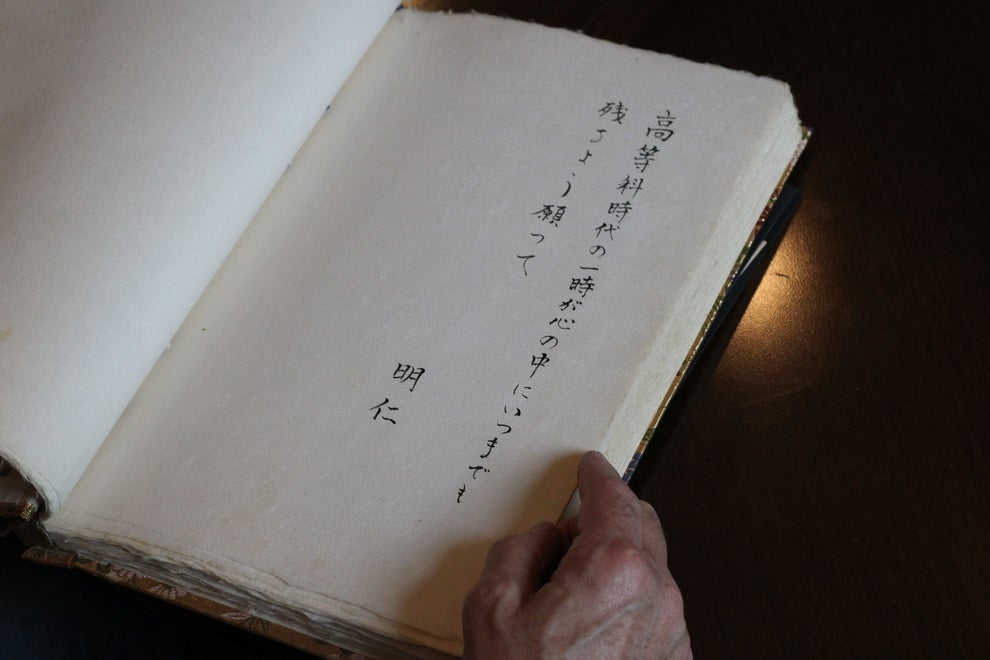 高等科時代の一時が心の中にいつまでも
残るよう願って
明仁